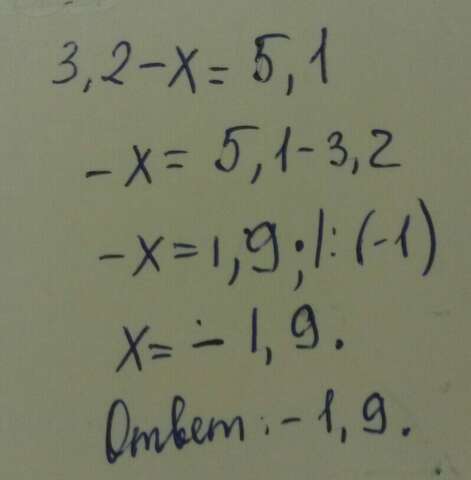 3,2-x= 5,1
-x= 5,1-3,2
-x=1,9;|:(-1)
x= -1,9.
Ответ:-1,9.